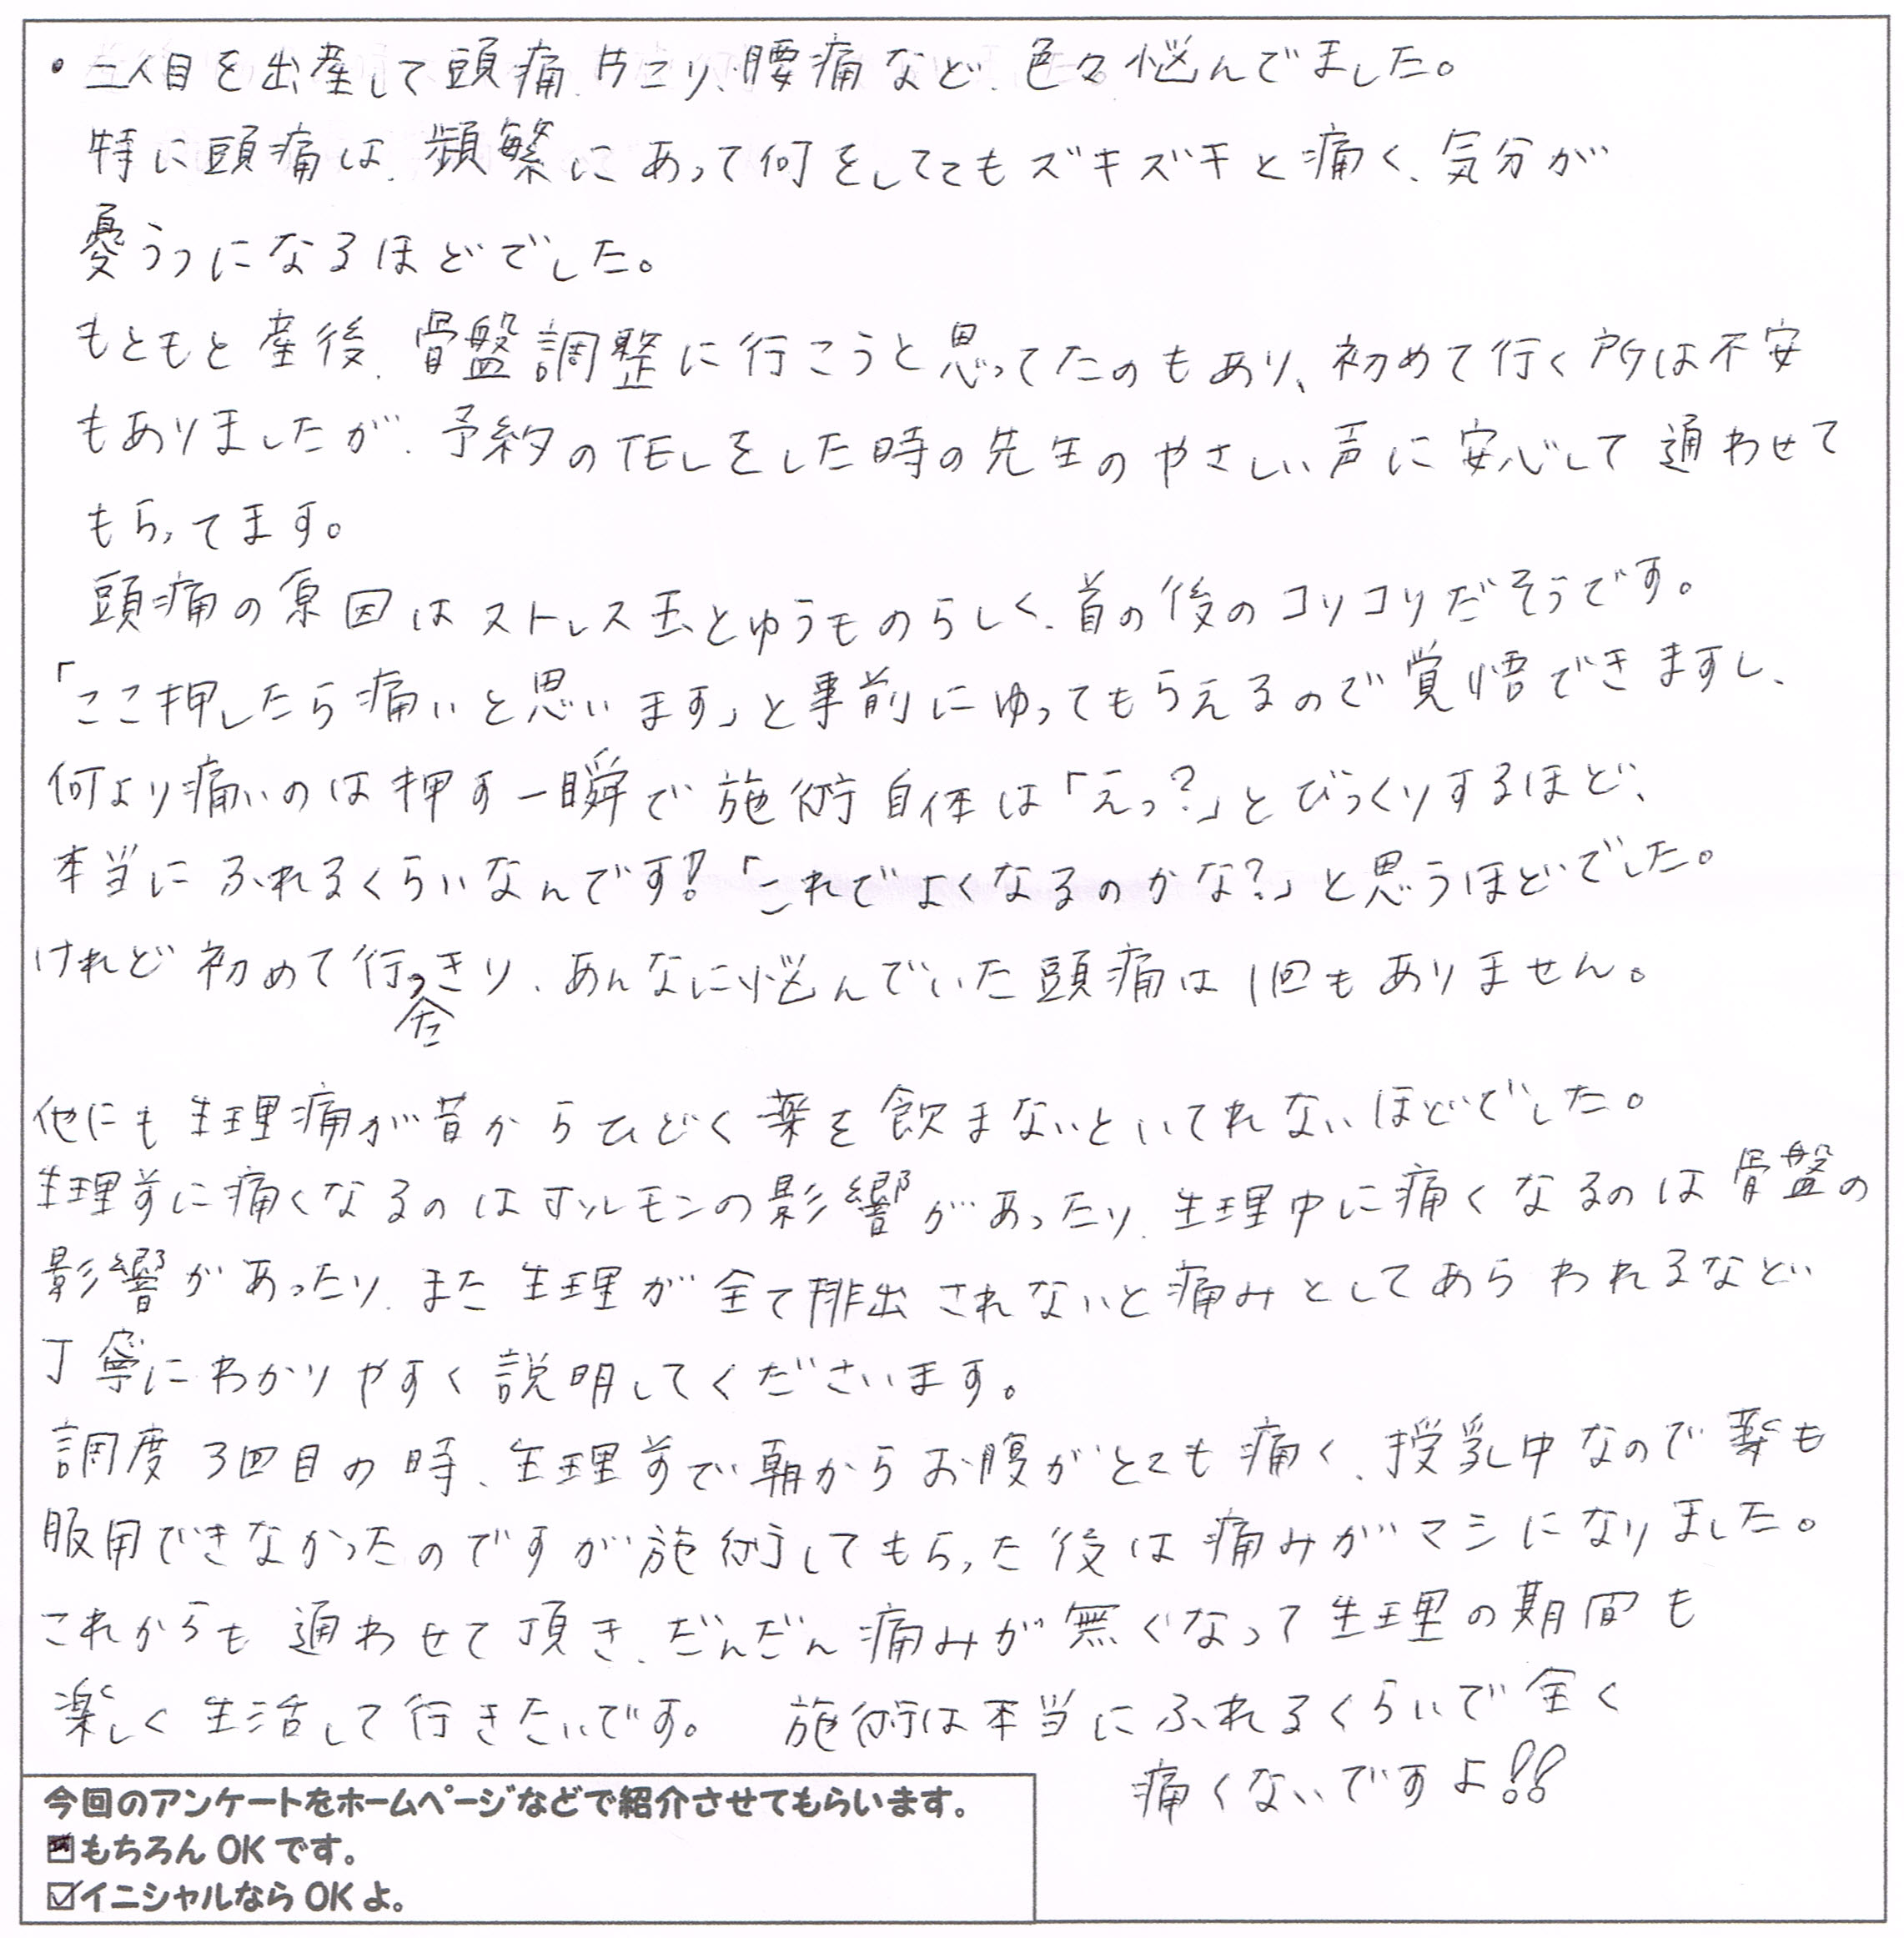 ・三人目を出産して頭痛、肩こり、腰痛など、色々悩んでました。
特に頭痛は、頻繁にあって何をしててもズキズキと痛く、気分が
憂うつになるほどでした。
もともと産後、骨盤調整に行こうと思ってたのもあり、初めて行く所は不安
もありましたが、予約のTELをした時の先生のやさしい声に安心して通わせて
もらってます。
頭痛の原因はストレス玉とゆうものらしく、首の後のコリコリだそうです。
「ここ押したら痛いと思います」と事前にゆってもらえるので覚悟できますし、
何より痛いのは押す一瞬で施術自体は「えっ?」とびっくりするほど、
本当にふれるくらいなんです!「これでよくなるのかな?」と思うほどでした。
けれど初めて行っきり、あんなに悩んでいた頭痛は1回もありません。
他にも生理痛が昔からひどく薬を飲まないといてれないほどでした。
生理前に痛くなるのはホルモンの影響があったり、生理中に痛くなるのは骨盤の
影響があったり、また生理が全て排出されないと痛みとしてあらわれるなど
丁寧にわかりやすく説明してくださいます。
調度3回目の時、生理前で朝からお腹がとても痛く、授乳中なので薬も
服用できなかったのですが施術してもらった後は痛みがマシになりました。
これからも通わせて頂き、だんだん痛みが無くなって生理の期間も
楽しく生活して行きたいです。 施術は本当にふれるくらいで全く
痛くないですよ!!
今回のアンケートをホームページなどで紹介させてもらいます。
■もちろんOKです。
☑イニシャルならOKよ。